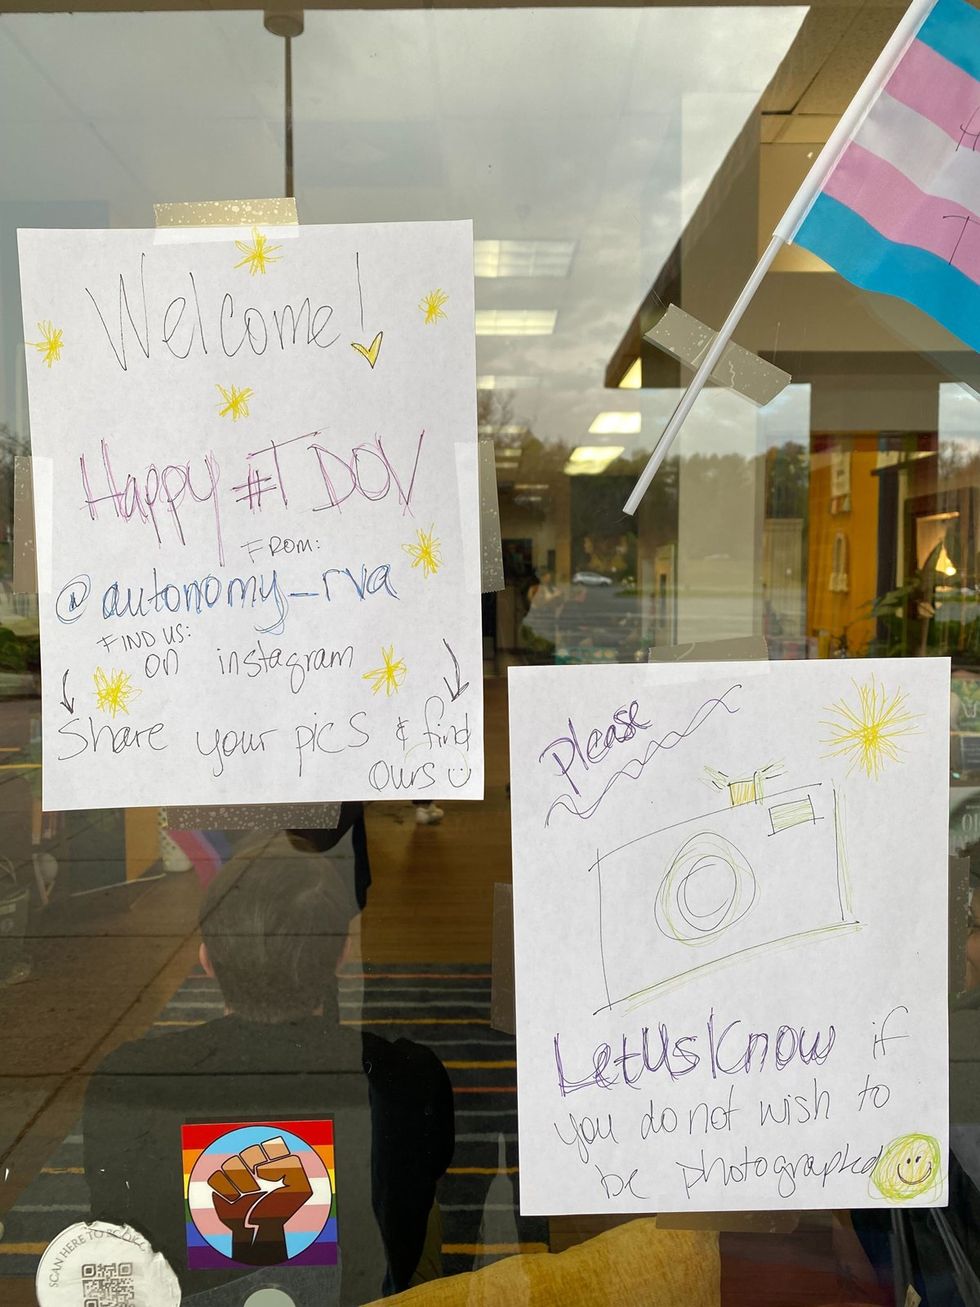 Welcome!
Happy #TDOV
FROM:
@autonomy_rva
FIND US:
on instagram
Share your pics & find
ours
Please
Let Us Know if
you do not wish to
be photographed
SCAN HERE TO BOOK